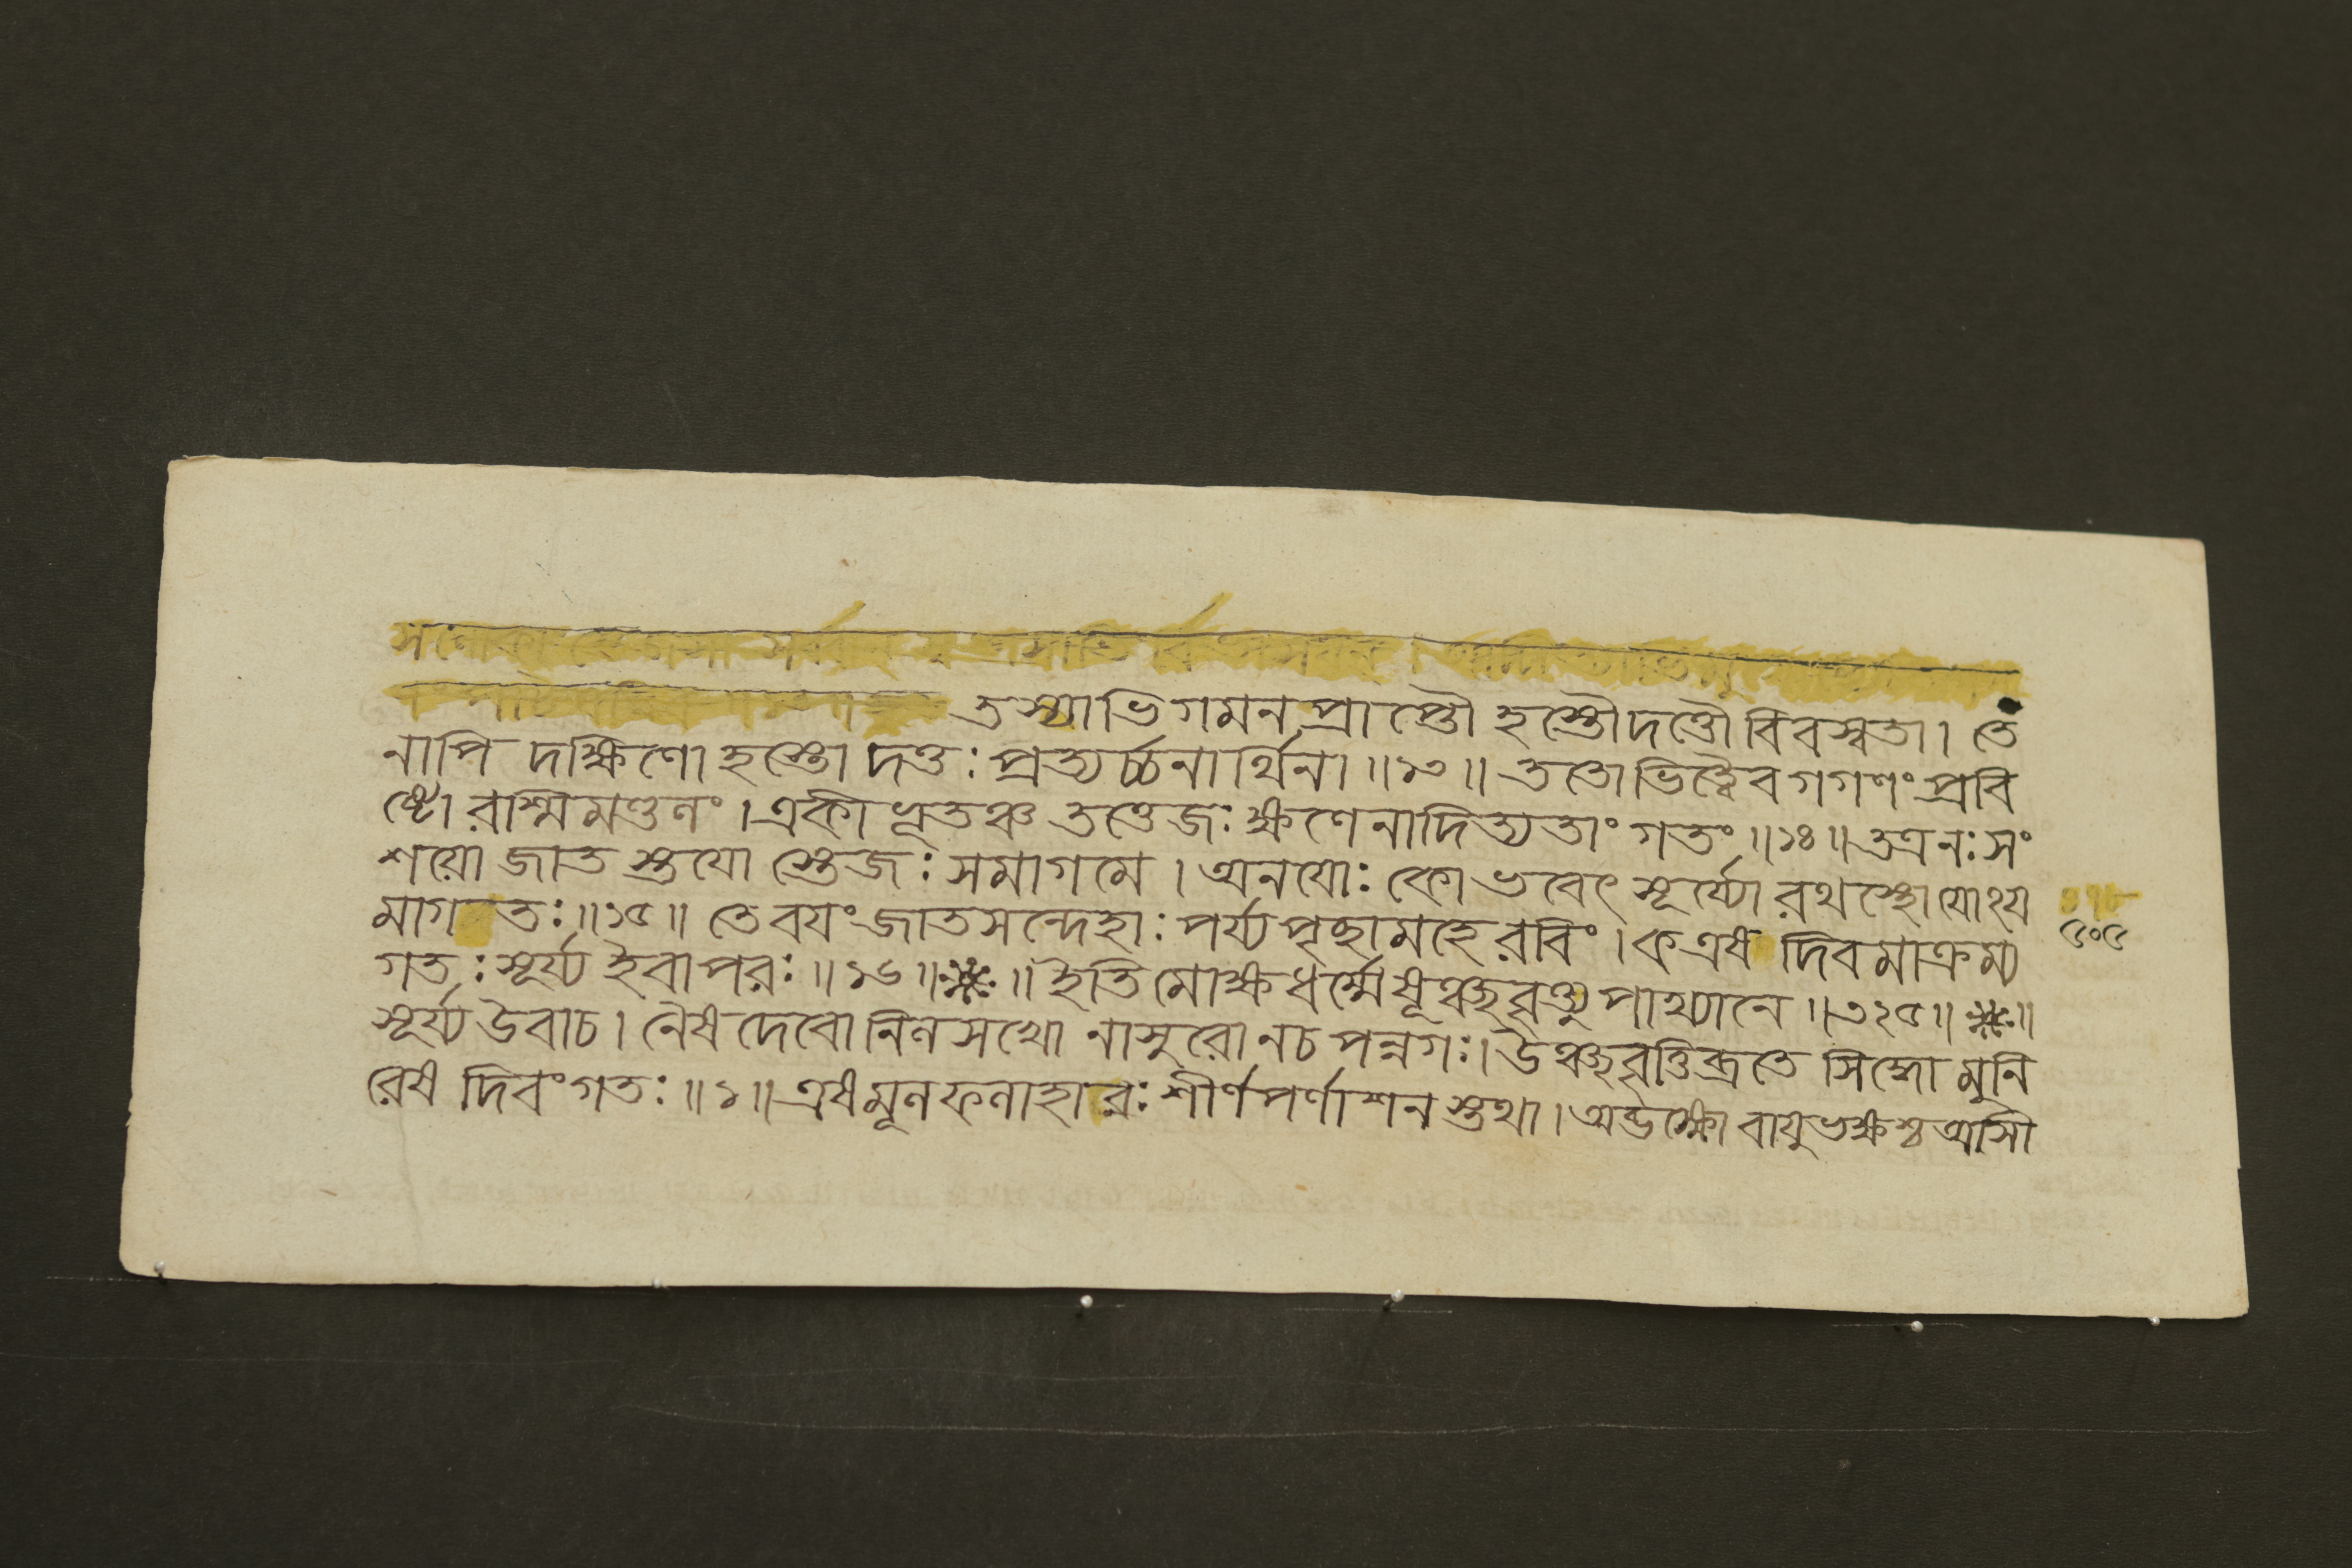 তস্যাভিগমনপ্রাপ্তৌ হস্তৌ দত্তৌ বিবস্বতা। তে
নাপি দক্ষিণো হস্তো দত্তঃ প্রত্যর্চ্চনার্থিনা॥১৩॥ ততো ভিত্ত্বৈব গগণং প্রবি
ষ্টো রশ্মিমণ্ডলং। একীভূতঞ্চ তত্তেজঃ ক্ষণেনাদিত্যতাং গতং॥১৪॥ তত্র নঃ সং
শয়ো জাতস্তয়োস্তেজঃ সমাগমে। অনয়োঃ কো ভবেৎ সূর্য্যো রথস্থো যোঽয়
মাগতঃ॥১৫॥ তে বয়ং জাতসন্দেহাঃ পর্য্যপৃচ্ছামহে রবিং। ক এষ দিবমাক্রম্য
৫০৫
গতঃ সূর্য্য ইবাপরঃ॥১৬॥ ॥ ইতি মোক্ষধর্ম্মেষূঞ্ছবৃত্ত্যুপাখ্যানে॥৩২৫॥ ॥
সূর্য্য উবাচ। নৈষ দেবো নিলসখো নাসুরো ন চ পন্নগঃ। উঞ্ছবৃত্তিব্রতে সিদ্ধো মুনি
রেষ দিবং গতঃ॥১॥ এষ মূলফলাহারঃ শীর্ণপর্ণাশনস্তথা। অব্ভক্ষো বায়ুভক্ষশ্চ আসী